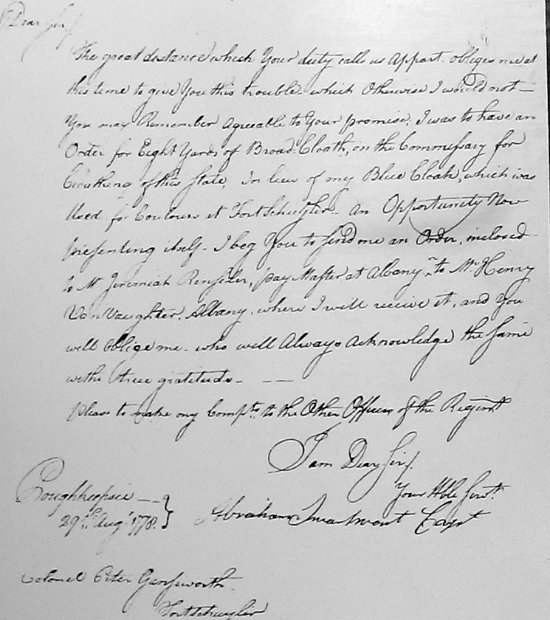 Dear Sir,
The great distance which Your duty calls us Appart. obliges me at
this time to give You this trouble which Otherwise I would not—
You may Remember Agreable to Your promise, I was to have an
Order for Eight Yards of Broad Cloath, on the Commissary for
Cloathing of this State, In lieu of my Blue Cloak, which was
Used for Coulours at Fort Schuyler. An Opportunity Now
presenting itself. I beg You to send me an Order, inclosed
to Mr. Jeremiah Renseler, pay Master at Albany, or to Mr. Henry
Van Vaughter, Albany, where I will receive it, and You
will Oblige me who will Always Acknowledge the same
withe true gratitude. — —
please to make my Compts. to the Other Officers of the Regimt
I am Dear Sir,
Your Hble Servt.
Poughkepsie —
29th. Augt. 1778. } Abraham Swartwout Capt
Colonel Peter Gansworth.
Fortschuyler